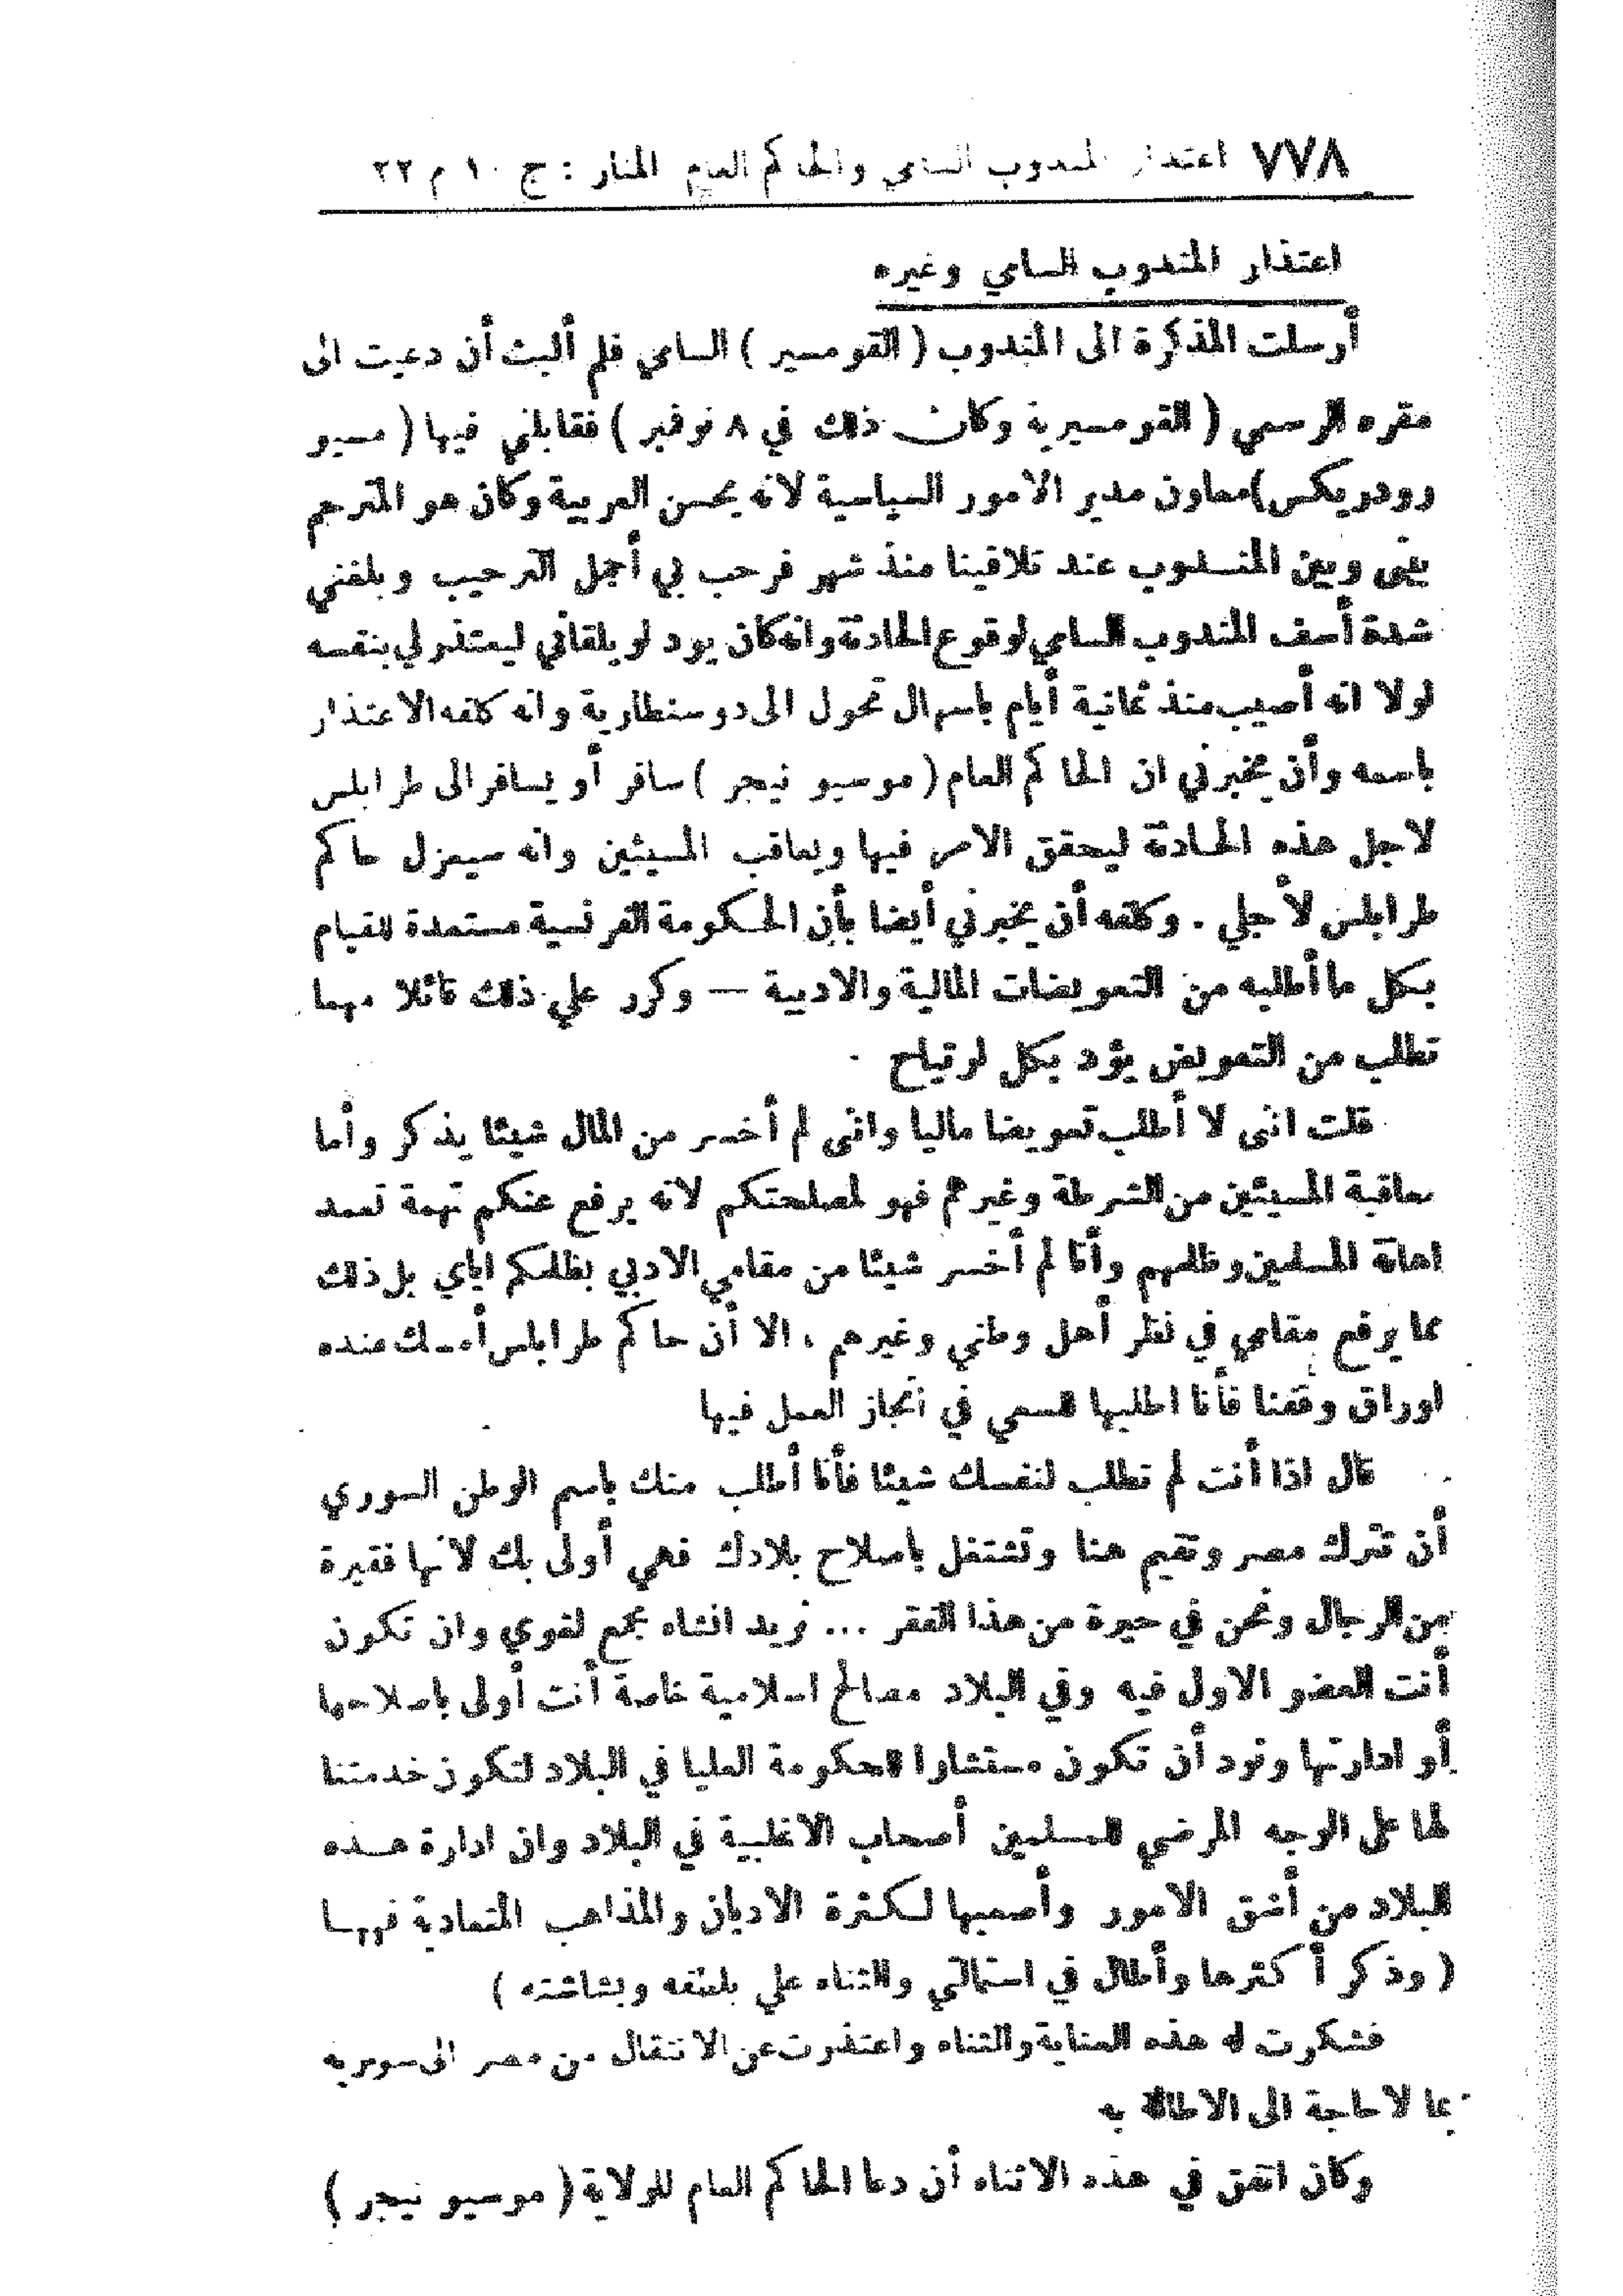 ٧٧٨ اعتذار المندوب السامي والحاكم العام المنار : ج ١٠ م ٢٢
اعتذار المندوب السامي وغيره
أرسلت المذكرة الى المندوب ( القومسير ) السامي فلم ألبث أن دعيت الى
مقره الرسمي ( القومسيرية وكان ذلك في ٨ نوفمبر ) فقابلني فيها ( مسيو
رودريكس ) معاون مدير الامور السياسية لانه يحسن العربية وكان هو المترجم
بيني وبين المندوب عند تلاقينا منذ شهر فرحب بي أجمل الترحيب وبلغني
شدة أسف المندوب السامي لوقوع الحادثة وانه كان يود لو يلقاني ليعتذر لي بنفسه
لولا انه أصيب منذ ثمانية أيام باسهال تحول الى دوسنطارية وانه كلفه الاعتذار
باسمه وأن يخبرني ان الحاكم العام ( موسيو نيجر ) سافر أو يسافر الى طرابلس
لاجل هذه الحادثة ليحقق الامر فيها ويعاقب المسيئين وانه سيعزل حاكم
طرابلس لأجلي . وكلفه أن يخبرني أيضا بأن الحكومة الفرنسية مستعدة للقيام
بكل ما أطلبه من التعويضات المالية والادبية — وكرر علي ذلك قائلا مهما
تطلب من التعويض يؤد بكل ارتياح .
قلت انى لا أطلب تعويضا ماليا وانى لم أخسر من المال شيئا يذكر وأما
معاقبة المسيئين من الشرطة وغيرهم فهو لمصلحتكم لانه يرفع عنكم تهمة تعمد
اهانة المسلمين وظلمهم وأنا لم أخسر شيئا من مقامي الادبي بظلمكم اياي بل ذلك
مما يرفع مقامي في نظر أهل وطني وغيرهم ، الا أن حاكم طرابلس أمسك عنده
اوراق وقفنا فأنا اطلبها للسعي في انجاز العمل فيها
قال اذا أنت لم تطلب لنفسك شيئا فأنا أطلب منك باسم الوطن السوري
أن تترك مصر وتقيم هنا وتشتغل باصلاح بلادك فهي أولى بك لانها فقيرة
من الرجال ونحن في حيرة من هذا الفقر ... نريد انشاء مجمع لغوي وان تكون
أنت العضو الاول فيه وفي البلاد مصالح اسلامية خاصة أنت أولى باصلاحها
أو ادارتها ونود أن تكون مستشارا للحكومة العليا في البلاد لتكون خدمتنا
لها على الوجه المرضي للمسلمين أصحاب الاغلبية في البلاد وان ادارة هذه
البلاد من أشق الامور وأصعبها لكثرة الاديان والمذاهب المتعادية فيها
( وذكر أكثرها وأطال في استمالتي والثناء علي بلطفه وبشاشته )
فشكرت له هذه العناية والثناء واعتذرت عن الانتقال من مصر الى سورية
بما لا حاجة الى الاطالة به
وكان اتفق في هذه الاثناء أن دعا الحاكم العام للولاية ( موسيو نيجر )